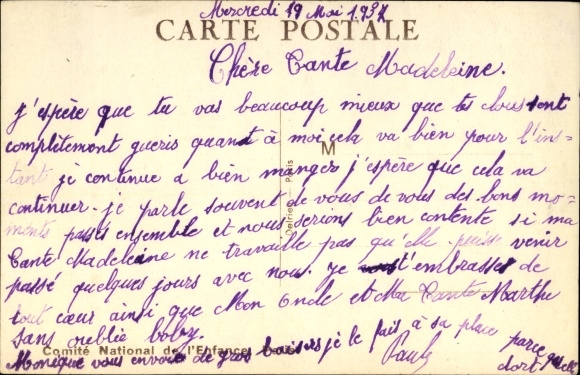 Mercredi 19 Mai 1937
CARTE POSTALE
Chère Tante Madeleine.
j'espère que tu vas beaucoup mieux que tes clous sont
complètement gueris quant à moi cela va bien pour l'ins-
tant je continue a bien manger j'espère que cela va
continuer. je parle souvent de vous de vous des bons mo-
ments passés ensemble et nous serions bien contente si ma
Tante Madeleine ne travaille pas qu'elle puisse venir
passé quelques jours avec nous. je t'embrasse de
tout cœur ainsi que Mon Oncle et Ma Tante Marthe
sans oublié boby.
Monique vous envoie de gros baisers je le fais à sa place parce quelle
dort
Pauly
Delrieu - Paris
M
Comité National de l'Enfance